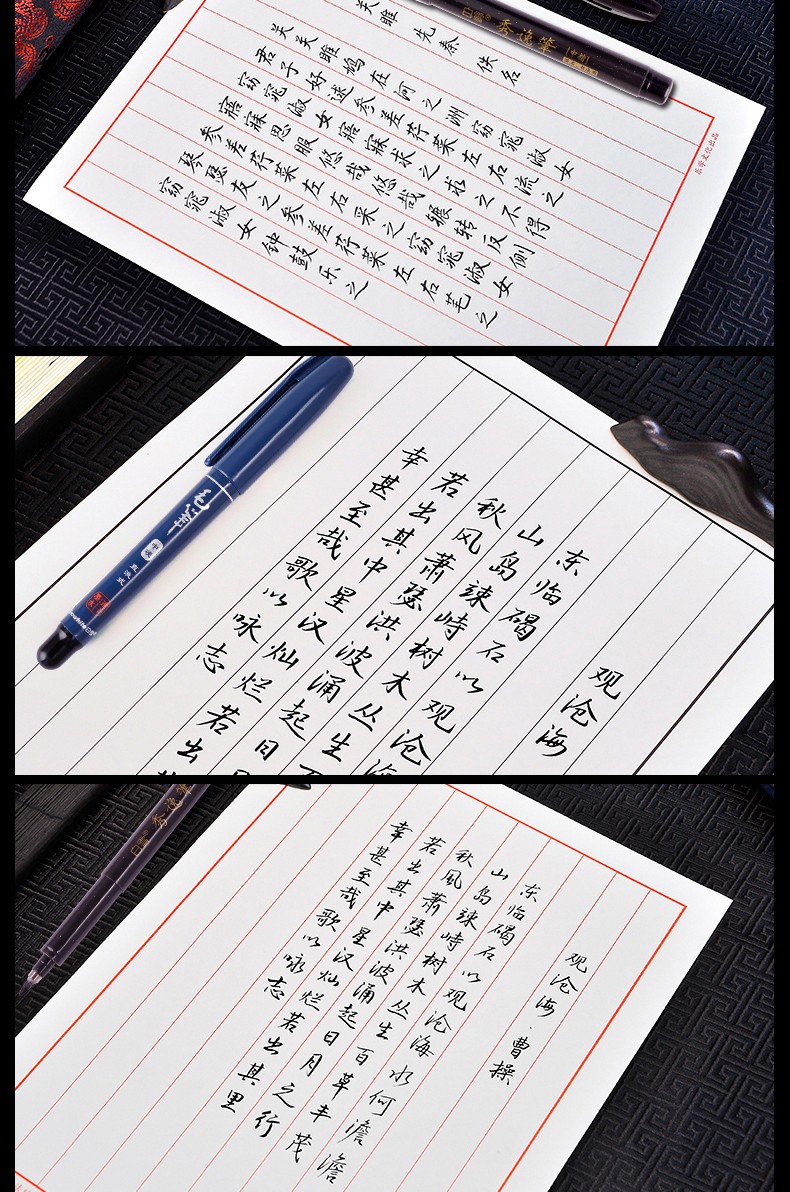 关雎 先秦 佚名
关关雎鸠在何之洲窈窕淑女
君子好逑参差荇菜左右流之
窈窕淑女寤寐求之求之不得
寤寐思服悠哉悠哉辗转反侧
参差荇菜左右采之窈窕淑女
琴瑟友之参差荇菜左右芼之
窈窕淑女钟鼓乐之
秀逸筆
文化出品
观沧海
东临碣石以观沧海
山岛竦峙树木丛生百
秋风萧瑟洪波涌起日
若出其中星汉灿烂若出
幸甚至哉歌以咏志
毛筆
直液式
观沧海·曹操
东临碣石以观沧海水何澹澹
山岛竦峙树木丛生百草丰茂
秋风萧瑟洪波涌起日月之行
若出其中星汉灿烂若出其里
幸甚至哉歌以咏志
秀逸筆